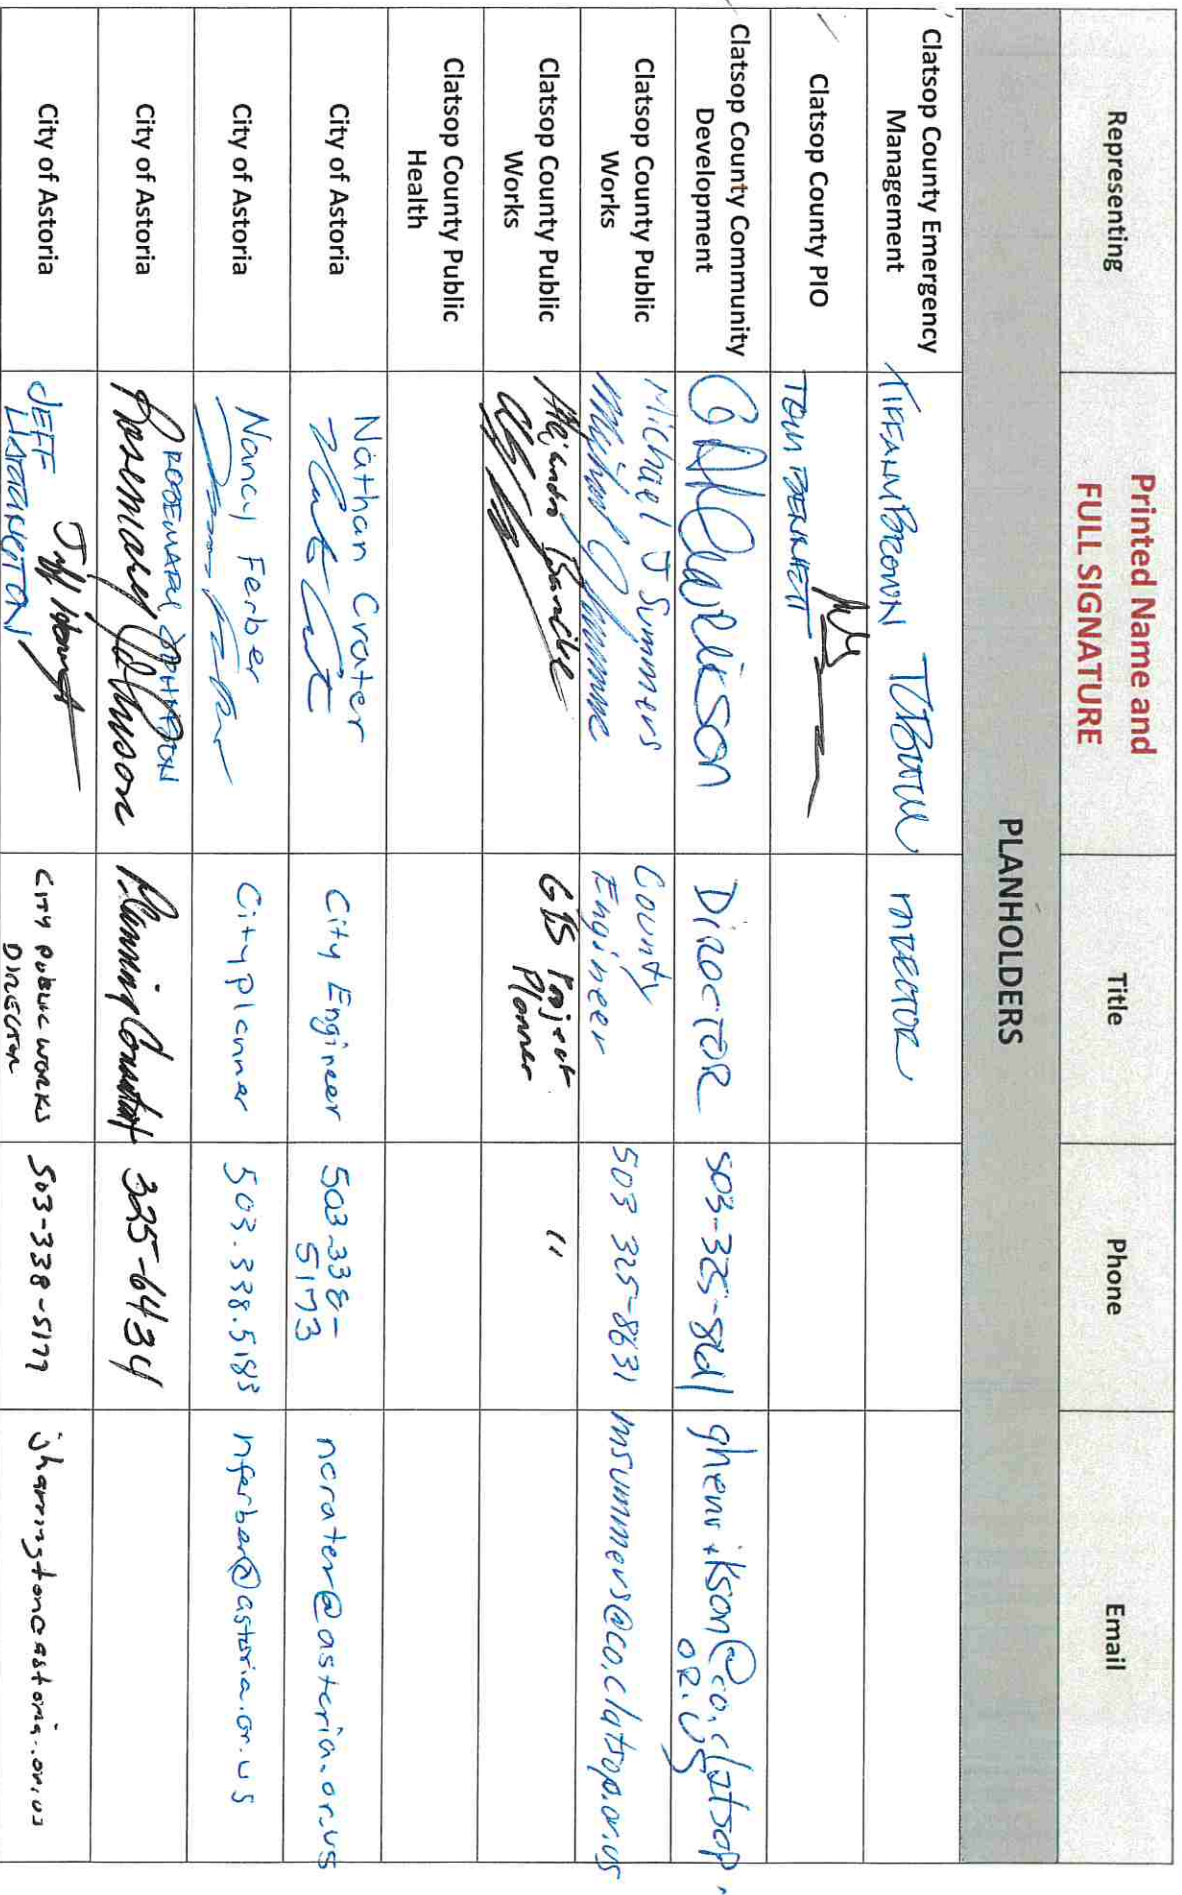 Representing
Printed Name and
FULL SIGNATURE
Title
Phone
Email
PLANHOLDERS
Clatsop County Emergency
Management
TIFFANY BROWN
Clatsop County PIO
TOM BENNETT
Clatsop County Community
Development
DIRECTOR
503-325-8611
ghenrikson@co.clatsop.
OR.US
Clatsop County Public
Works
Michael J Summers
County
Engineer
503 325-8631
msummers@co.clatsop.or.us
Clatsop County Public
Works
GIS Project
Planner
"
Clatsop County Public
Health
City of Astoria
Nathan Crater
City Engineer
503-338-
5173
ncrater@astoria.or.us
City of Astoria
Nancy Ferber
City planner
503.338.5183
nferber@astoria.or.us
City of Astoria
ROSEMARY JOHNSON
Rosemary Johnson
Planning Consultant
325-6434
City of Astoria
JEFF
HARRINGTON
CITY PUBLIC WORKS
DIRECTOR
503-338-5177
jharrington@astoria.or.us